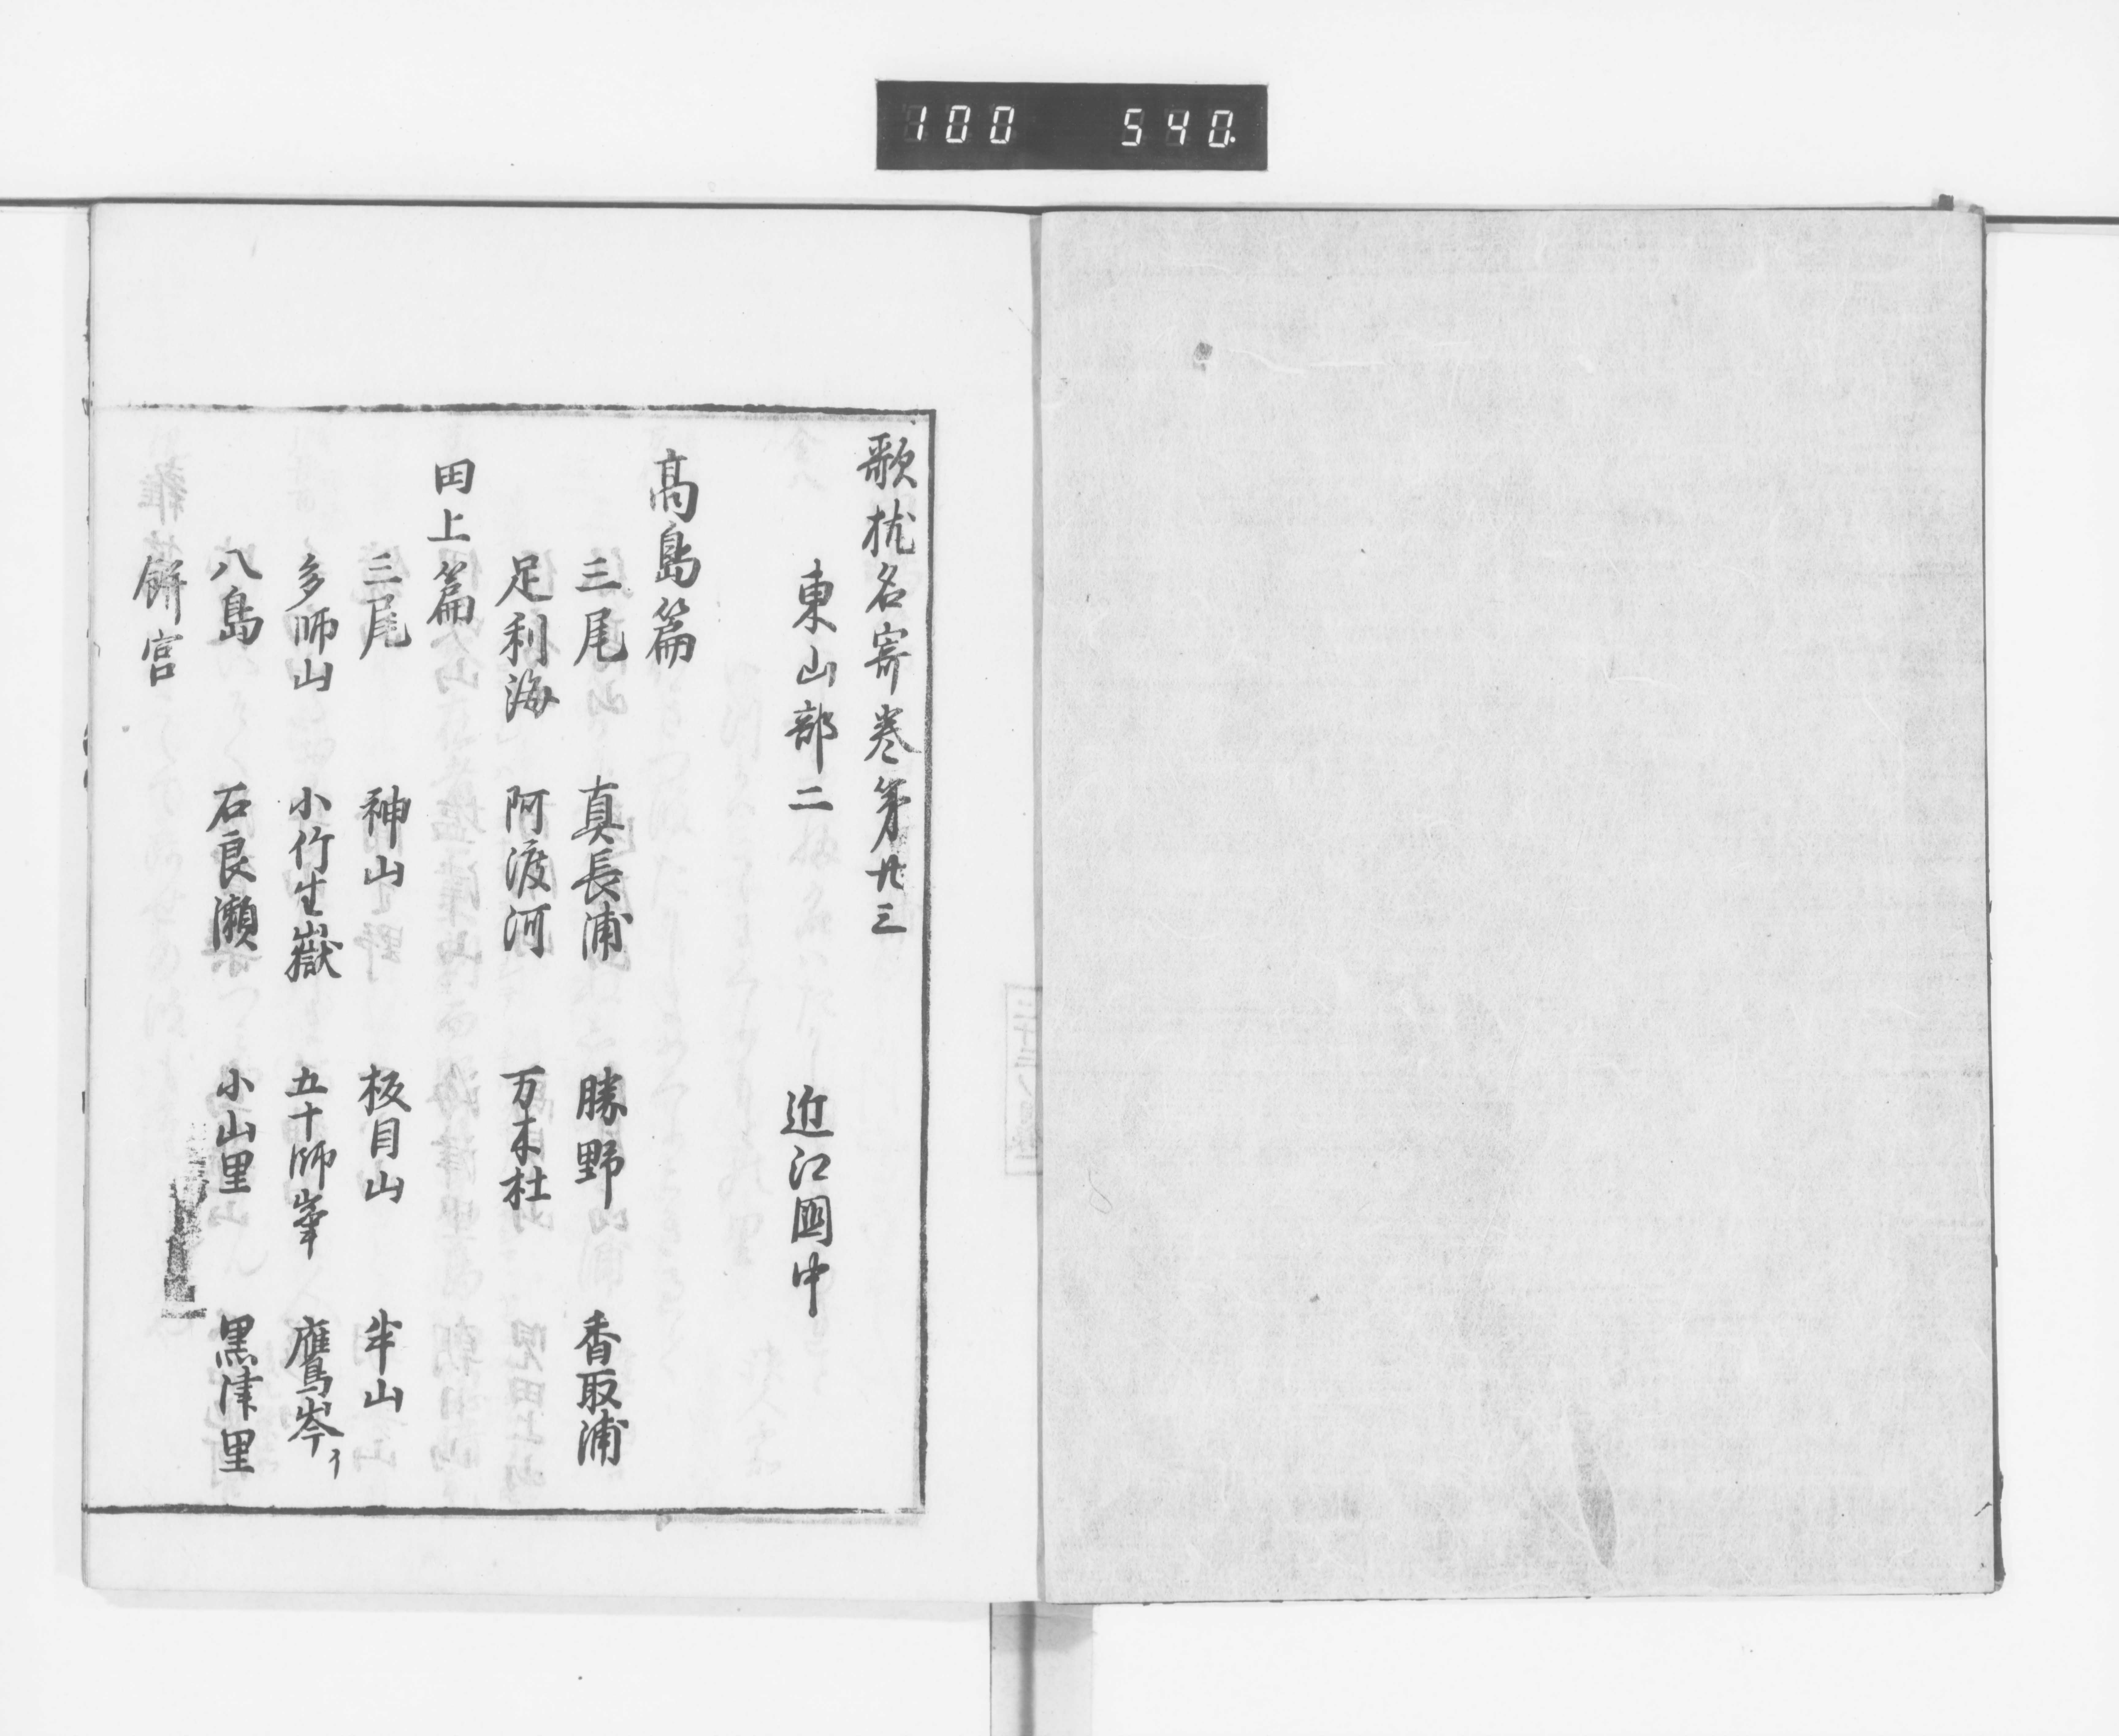 100 540.
歌枕名寄巻第廿三
東山部二 近江國中
髙島篇
三尾 真長浦 勝野 香取浦
足利海 阿渡河 万木杜
田上篇
三尾 神山 板目山 半山
多師山 小竹生嶽 五十師峯 鷹岑イ
八島 石良瀬 小山里 黒津里
餅宮